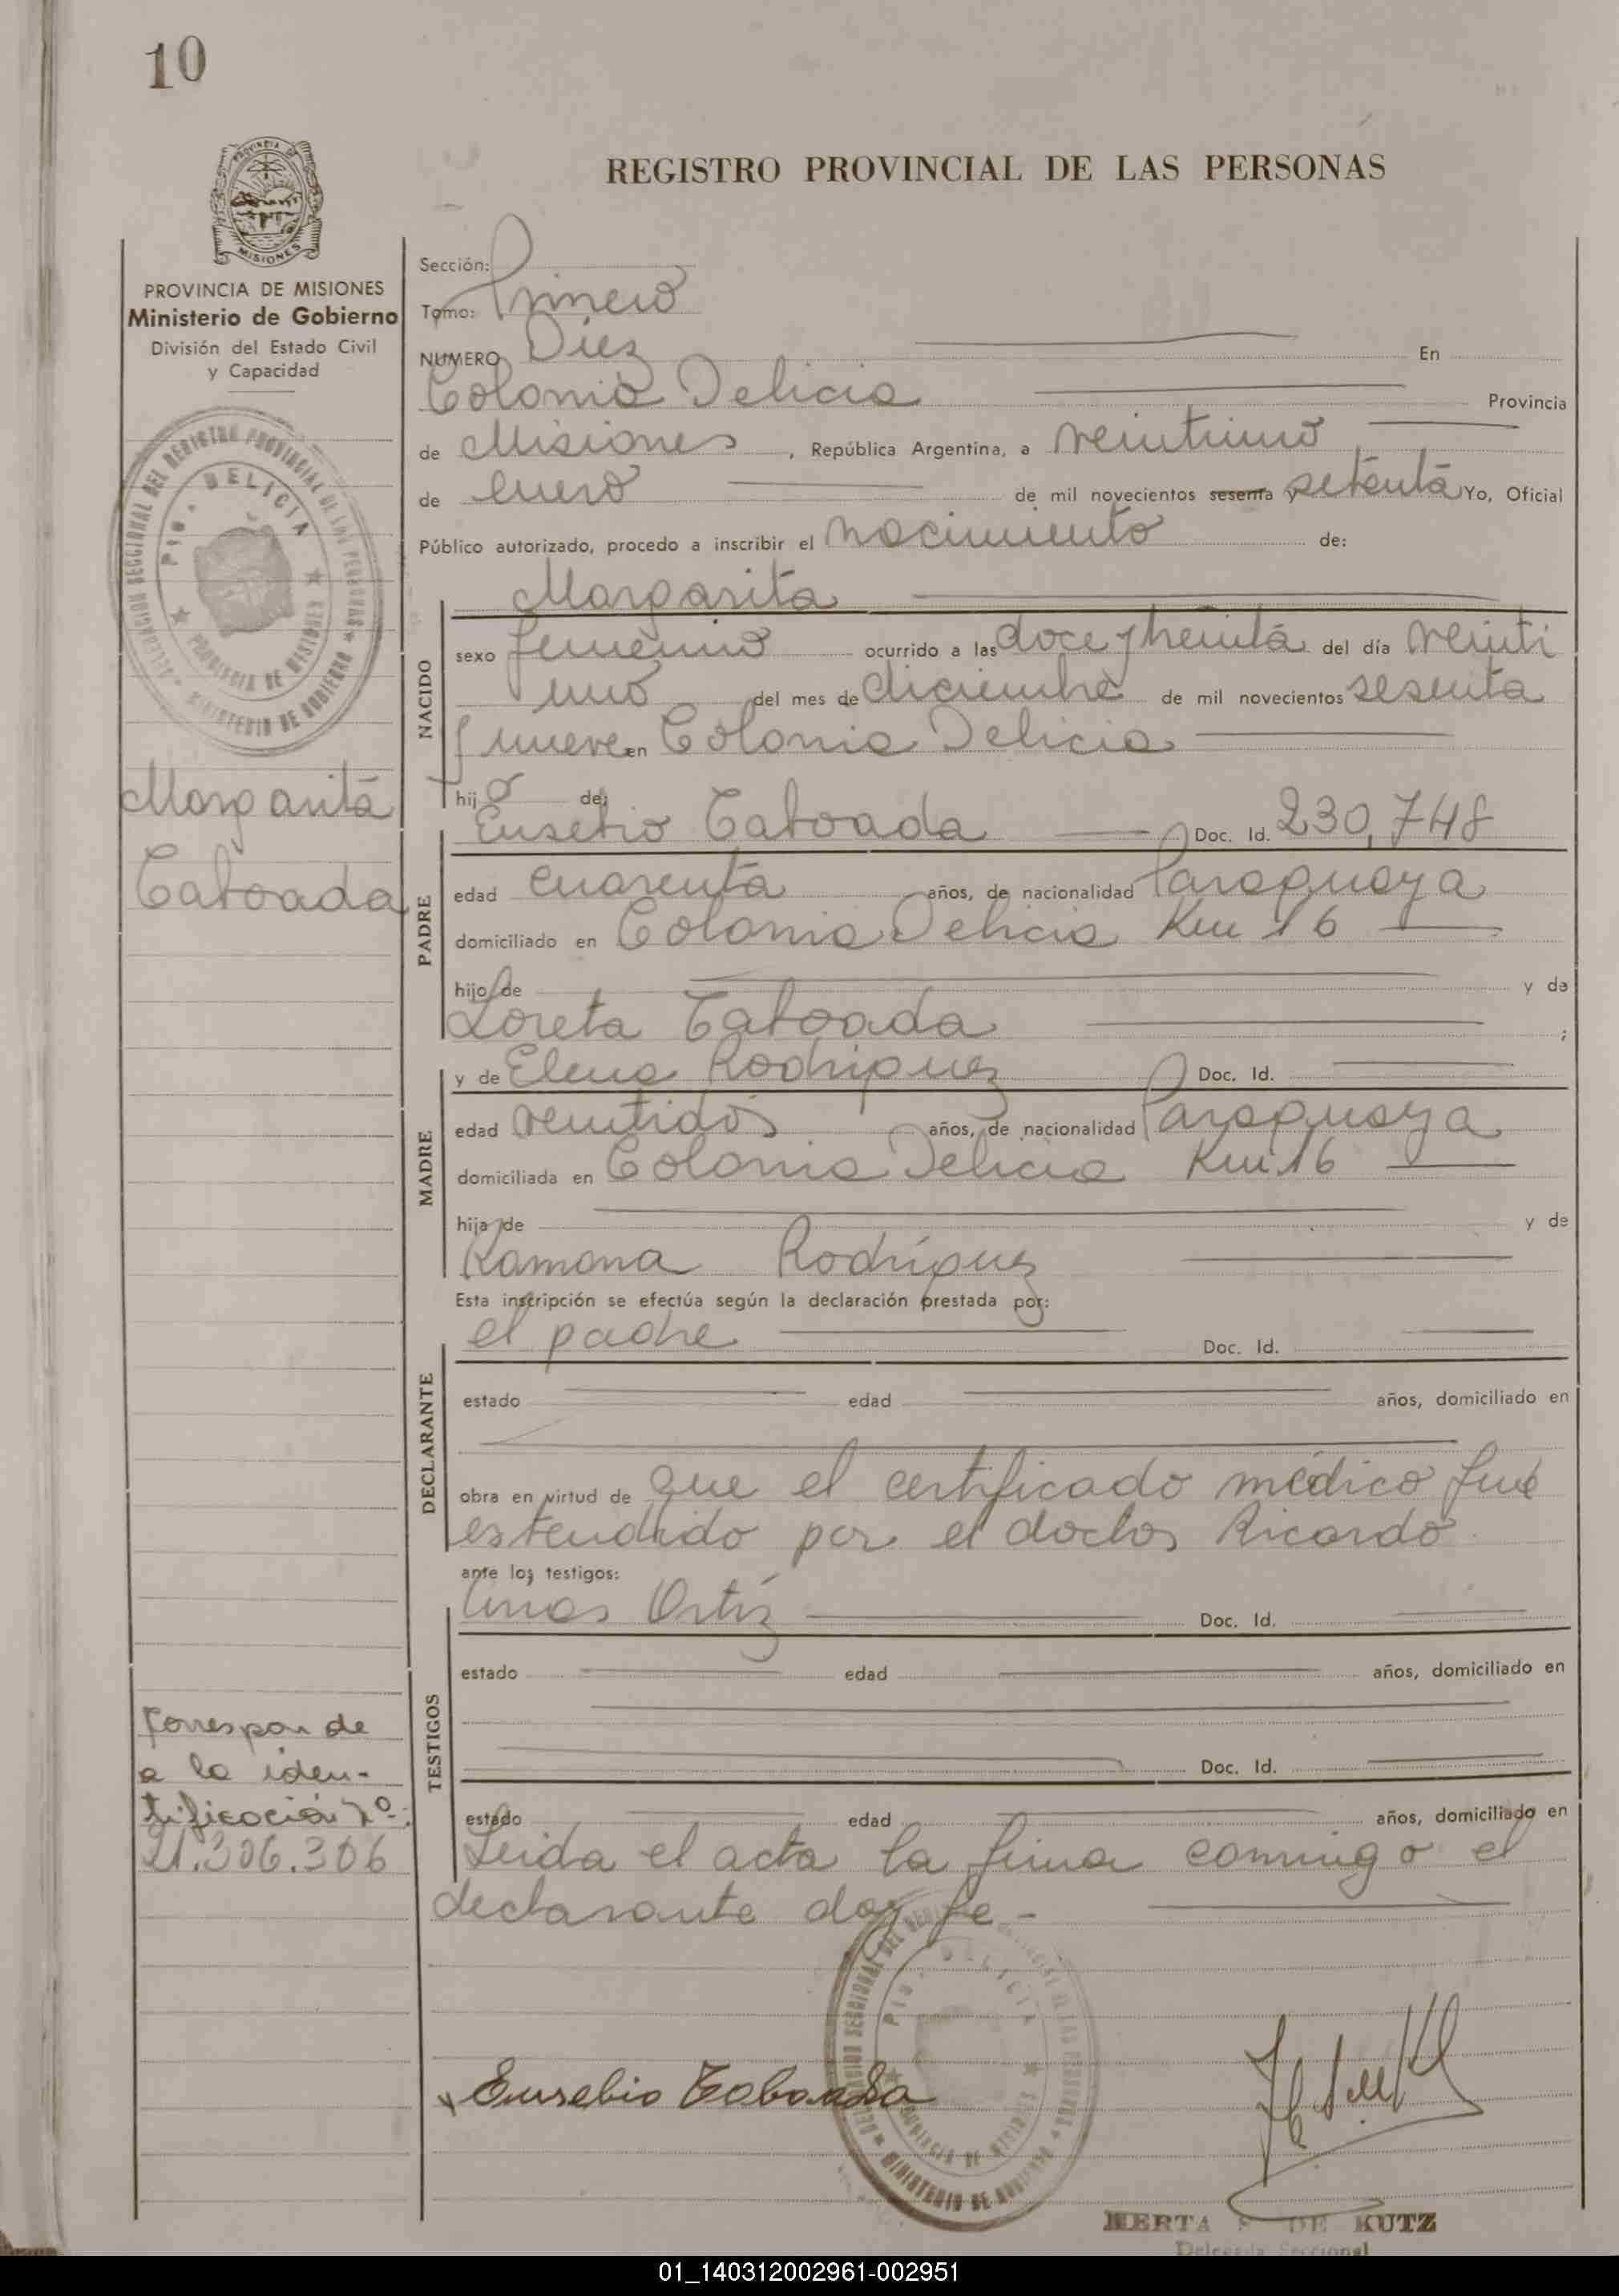 10
REGISTRO PROVINCIAL DE LAS PERSONAS
MISIONES
PROVINCIA DE MISIONES
Ministerio de Gobierno
División del Estado Civil
y Capacidad
DELEGACION SECCIONAL DEL REGISTRO PROVINCIAL DE LAS PERSONAS
Pto. DELICIA
PROVINCIA DE MISIONES
MINISTERIO DE GOBIERNO
Margarita
Taboada
Correspon de
a la iden-
tificación Nº:
21.306.306
Sección:
Tomo: Primero
NUMERO Diez En
Colonia Delicia Provincia
de Misiones, República Argentina, a veintiuno
de enero de mil novecientos sesenta y setenta Yo, Oficial
Público autorizado, procedo a inscribir el nacimiento de:
Margarita
NACIDO
sexo femenino ocurrido a las doce y treinta del día veinti
uno del mes de diciembre de mil novecientos sesenta
y nueve en Colonia Delicia
hija de:
Eusebio Taboada Doc. Id. 230,748
PADRE
edad cuarenta años, de nacionalidad Paraguaya
domiciliado en Colonia Delicia Km 16
hijo de y de
Loreta Taboada ;
y de Elena Rodríguez Doc. Id.
MADRE
edad veintidos años, de nacionalidad Paraguaya
domiciliada en Colonia Delicia Km 16
hija de y de
Ramona Rodríguez
Esta inscripción se efectúa según la declaración prestada por:
el padre Doc. Id.
DECLARANTE
estado edad años, domiciliado en
obra en virtud de que el certificado médico fué
estendido por el doctor Ricardo
ante los testigos:
Ortíz Doc. Id.
TESTIGOS
estado edad años, domiciliado en
Doc. Id.
estado edad años, domiciliado en
Leida el acta la firma conmigo el
declarante doy fe -
Eusebio Taboada
HERTA S DE KUTZ
Delegada Seccional
01_140312002961-002951